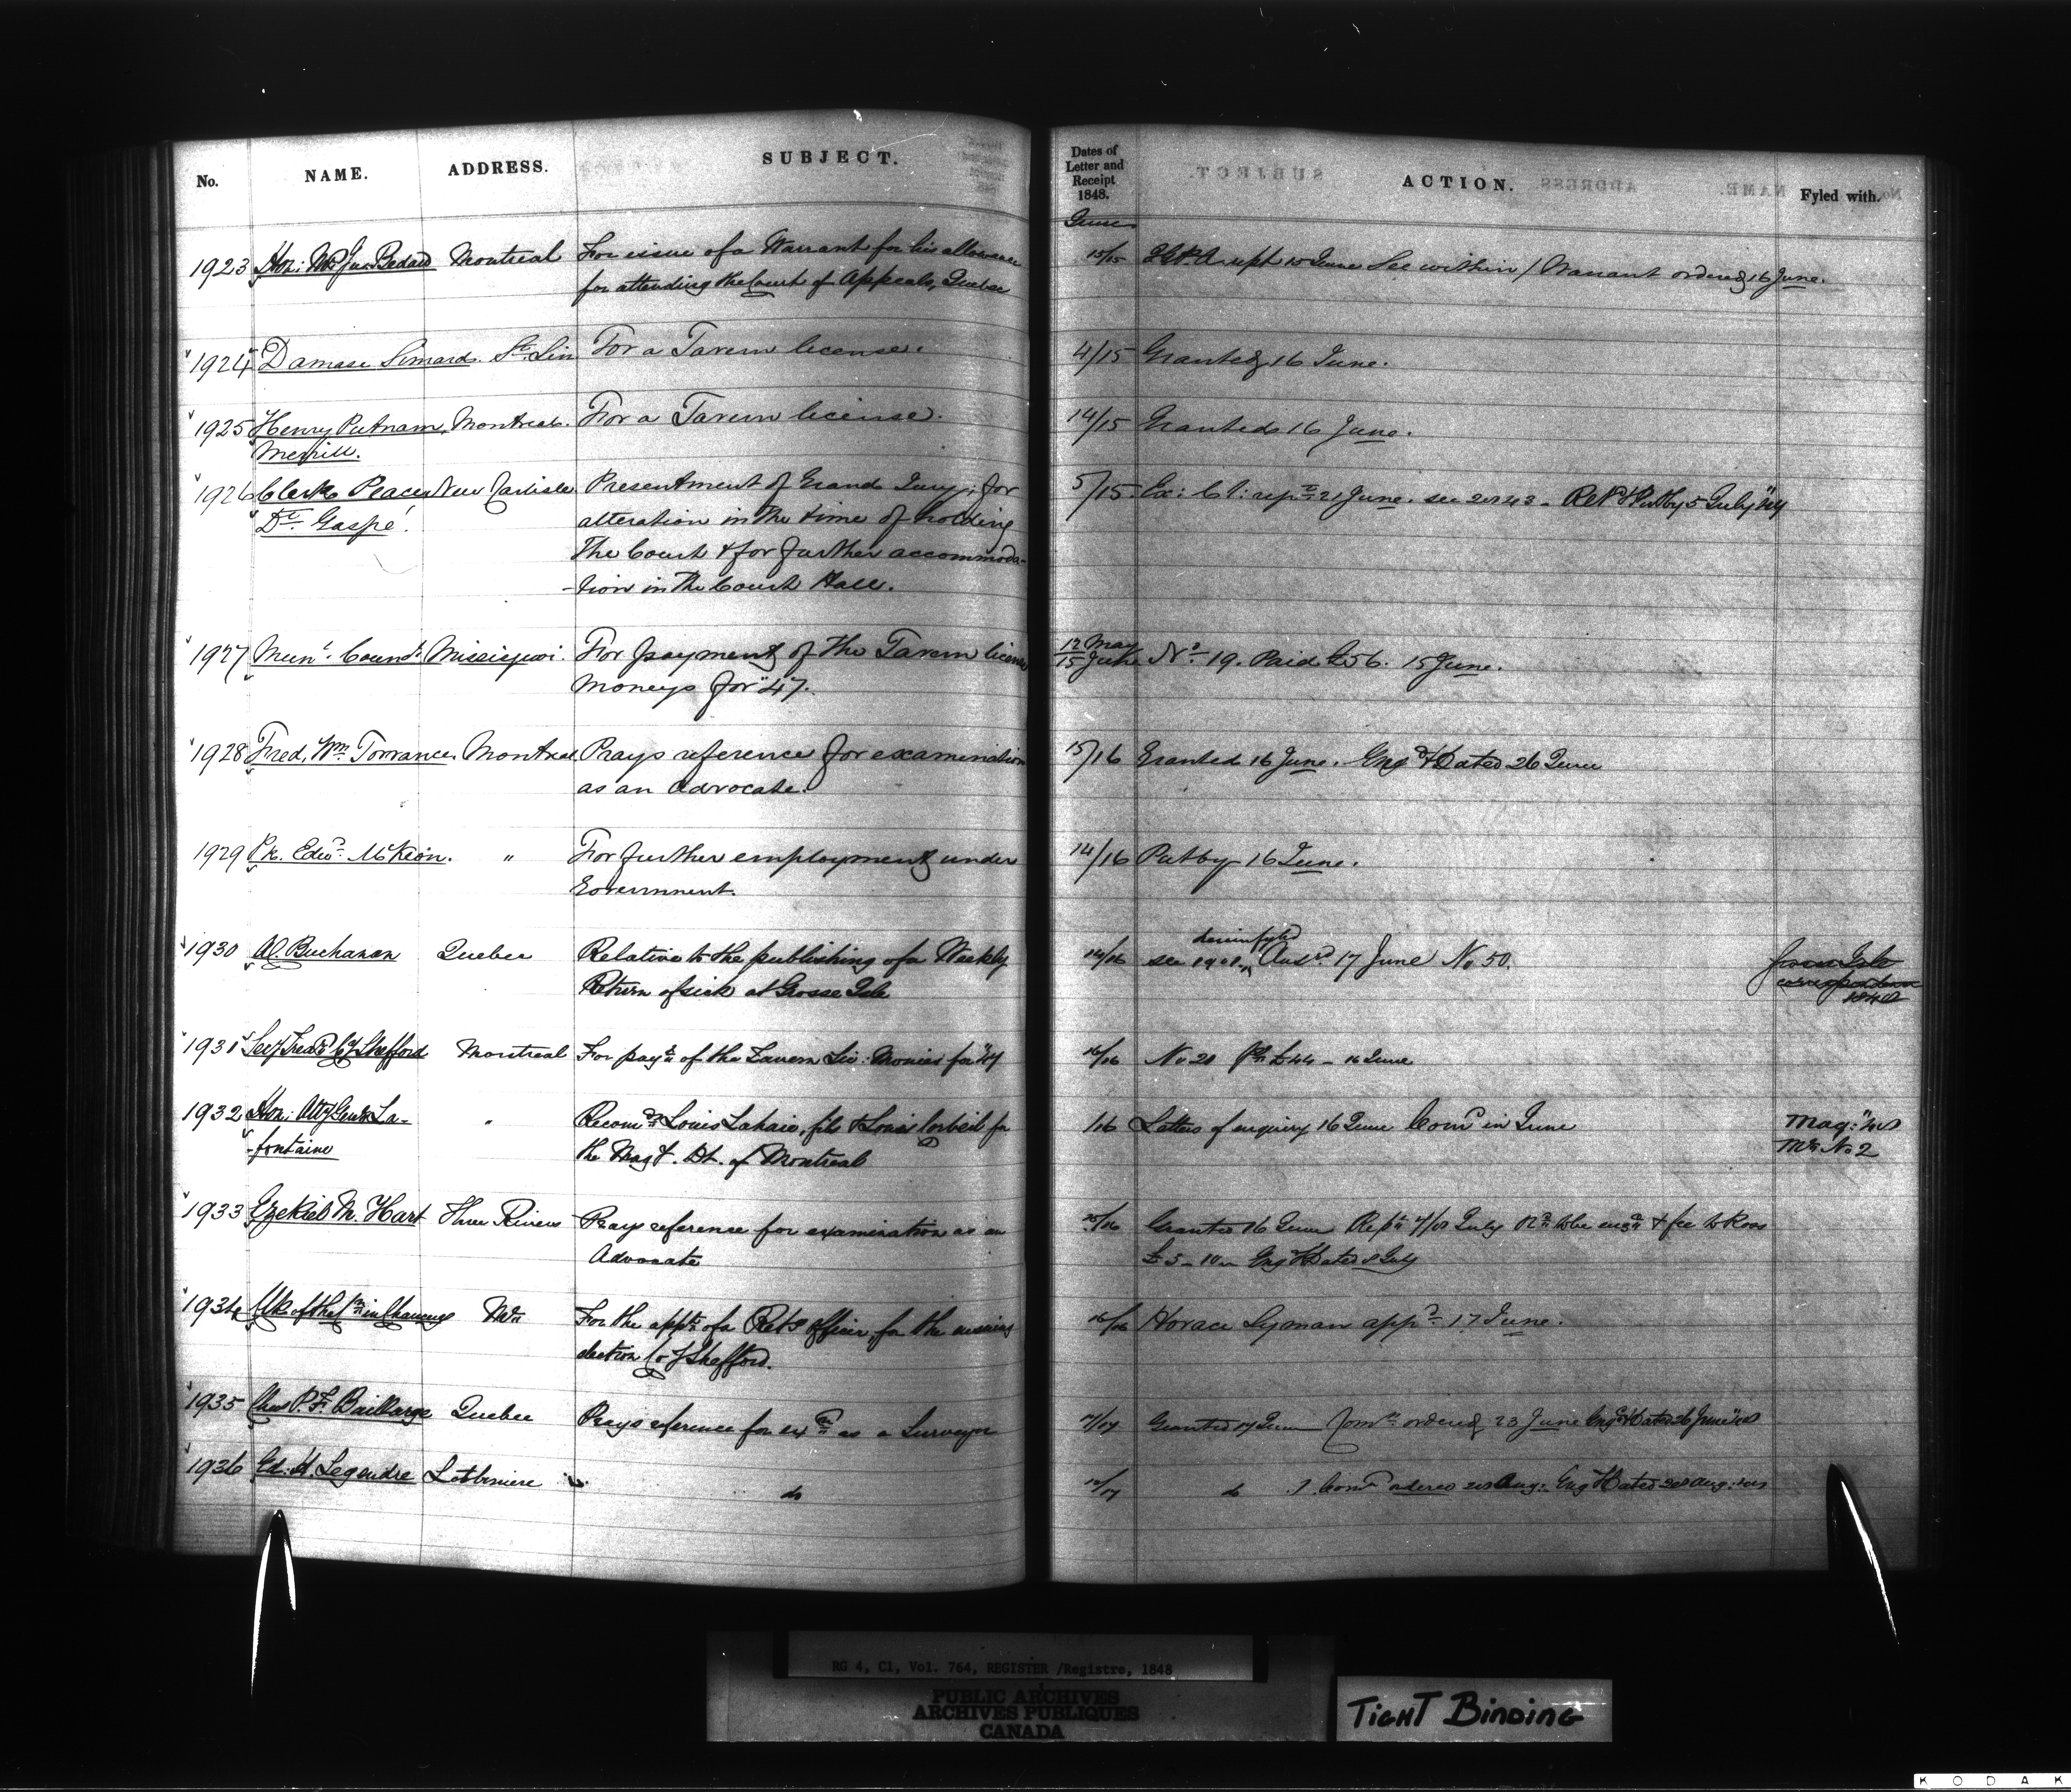 No. NAME. ADDRESS. SUBJECT. Dates of Letter and Receipt 1848. ACTION. Fyled with.
June
1923 Hon: Mr Jus: Bedard Montreal For issue of a Warrant for his allowance 15/15 rept 15 June See within / Warrant ordered 16 June.
for attending the Court of Appeals, Quebec
1924 Damase Simard St. Lin For a Tavern license. 4/15 Granted 16 June.
1925 Henry Putnam Montreal. For a Tavern license. 14/15 Granted 16 June.
Merrill.
1926 Clerk Peace New Carlisle Presentment of Grand Jury; for 5/15 Ex: C l: rept 21 June. see 2043 - Put by 5 July
Dt. Gaspé. alteration in the time of holding
The Court & for further accommoda-
-tion in the Court Hall.
1927 Munl. Council Missisquoi. For payment of the Tavern license 12 May
15 June No. 19. Paid £56. 15 June.
moneys for "47.
1928 Fred, Wm. Torrance. Montreal Prays reference for examination 15/16 Granted 16 June. Engd & Dated 26 June
as an Advocate.
1929 Pk. Edwd. McKeon. " For further employment under 14/16 Put by 16 June.
Government.
1930 AC. Buchanan Quebec Relative to the publishing of a Weekly 14/16 see 1901, Ansd. 17 June No 50.
Return of sick at Grosse Isle
Grosse Isle
correspondence
1848
1931 Secy Treasr Cy Shefford Montreal For payt of the Tavern Lic: Monies for "47 16/16 No 20 Pd £44 - 16 June
1932 Hon: Atty Genl La- " Recomds Louis Lahaie, fils & Louis Corbeil for /16 Letters of enquiry 16 June Comd in June Mag: "48
-fontaine the Magy. Dt. of Montreal Ml No 2
1933 Ezekiel M. Hart Three Rivers Prays reference for examination as an 15/16 Granted 16 June Rept 4/8 July to be engd & fee to Ross
Advocate £5-10- Eng & Dated 8 July
1934 Clk of the Cn in Chancery Ml For the appt of a Retg officer for the ensuing 16/16 Horace Lyman appd. 17 June.
election Co of Shefford.
1935 Chas P. F. Baillarge Quebec Prays reference for exn as a Surveyor 17/17 Granted 17 June Comn ordered 23 June Engd & Dated 26 June "48
1936 Ed: H. Legendre Lotbiniere do 12/17 do / Comn ordered 28 Aug: Eng & Dated 28 Aug: "48
RG 4, C1, Vol. 764, REGISTER /Registre, 1848
PUBLIC ARCHIVES
ARCHIVES PUBLIQUES
CANADA
TIGHT BINDING
KODAK